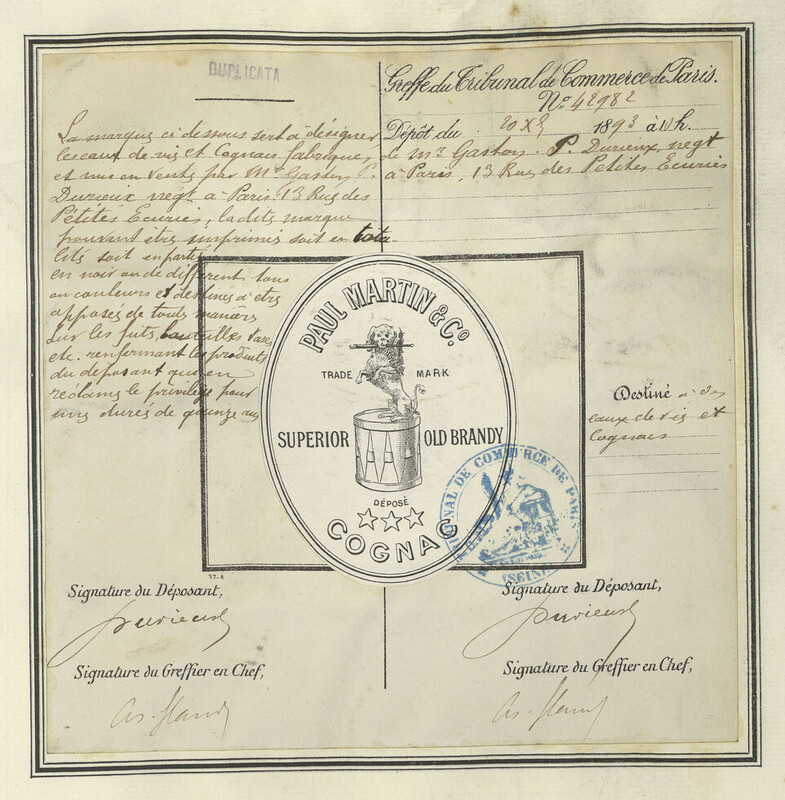 DUPLICATA
La marque ci dessous sert à désigner
les eaux de vie et Cognacs fabriqués
et mis en vente par Mr Gaston P.
Durieux negt à Paris 13 Rue des
Petites Ecuries, la dite marque
pouvant être imprimée soit en tota-
lité soit en partie
en noir ou de différents tons
ou couleurs et destinée à être
apposée de toute manière
sur les fûts, bouteilles vases
etc. renfermant les produits
du déposant qui en
réclame le privilège pour
une durée de quinze ans
Greffe du Tribunal de Commerce de Paris.
No 42982
Dépôt du 20 1893 à h.
de Mr Gaston P. Durieux, negt
à Paris, 13 Rue des Petites Ecuries
PAUL MARTIN & Co.
TRADE MARK
SUPERIOR OLD BRANDY
DÉPOSÉ
COGNAC
Destiné à des
eaux de vie et
Cognacs
TRIBUNAL DE COMMERCE DE PARIS
(SEINE)
37.R
Signature du Déposant,
Durieux
Signature du Greffier en Chef,
Signature du Déposant,
Durieux
Signature du Greffier en Chef,